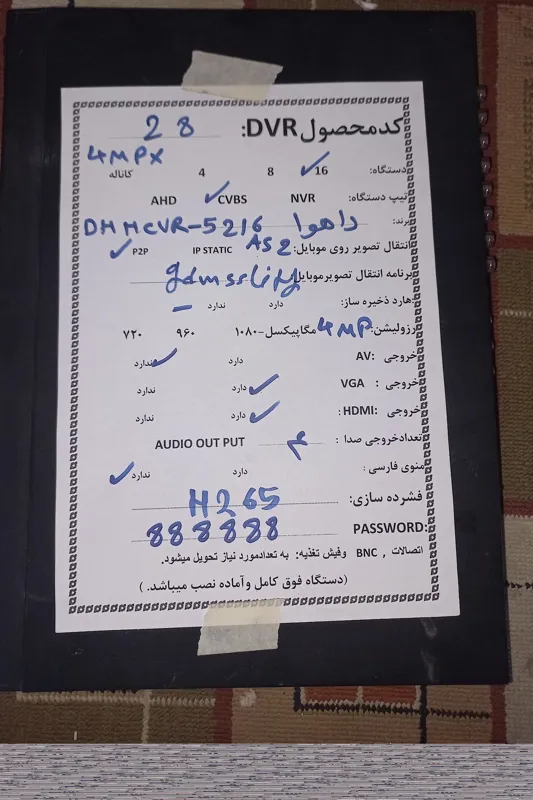 کدمحصول DVR: 28
4MPX
دستگاه: 16 ✓ 8 4 کاناله
تیپ دستگاه: NVR CVBS ✓ AHD
برند: داهوا DH HCVR-5216
انتقال تصویر روی موبایل: AS2 IP STATIC P2P ✓
برنامه انتقال تصویرموبایل: gdmss
هارد ذخیره ساز: دارد ندارد –
رزولیشن: 4MP مگاپیکسل-۱۰۸۰ ۹۶۰ ۷۲۰
خروجی AV: دارد ندارد ✓
خروجی VGA : دارد ✓ ندارد
خروجی HDMI: دارد ✓ ندارد
تعدادخروجی صدا : م AUDIO OUT PUT
منوی فارسی : دارد ندارد ✓
فشرده سازی: H265
PASSWORD: 888888
اتصالات , BNC وفیش تغذیه: به تعدادمورد نیاز تحویل میشود.
(دستگاه فوق کامل وآماده نصب میباشد. )